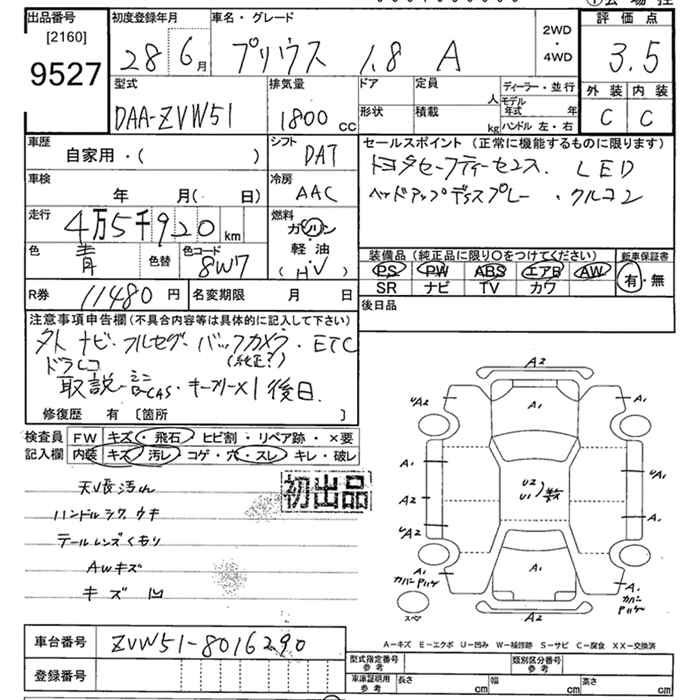 出品番号
[2160]
9527
初度登録年月
28 6月
車名・グレード
プリウス 1.8 A
2WD
・
4WD
評価点
3.5
外装 内装
C C
型式
DAA-ZVW51
排気量
1800 cc
ドア
形状
定員
人
積載
kg
ディーラー・並行
モデル年式 年
ハンドル 左・右
車歴
自家用・( )
シフト
DAT
車検
年 月( 日)
冷房
AAC
走行
4万5千920 km
燃料
ガソリン
軽・油
(HV)
色
青
色替
色コード
8W7
R券 11480 円
名変期限 月 日
セールスポイント(正常に機能するものに限ります)
トヨタセーフティーセンス LED
ヘッドアップディスプレー・クルコン
装備品(純正品に限り〇をつけてください)
PS PW ABS エアB AW
SR ナビ TV カワ
新車保証書
有・無
後日品
注意事項申告欄(不具合内容等は具体的に記入して下さい)
外ナビ・フルセグ・バックカメラ・ETC
ドラレコ (純正?)
取説・ミニB-CAS・キーフリー×1後日.
修復歴 有 〔箇所 〕
検査員 FW キズ・飛石・ヒビ割・リペア跡・×要
記入欄 内装 キズ・汚レ・コゲ・穴・スレ・キレ・破レ
天V長汚れ
ハンドルシワ ウキ
テールレンズくもり
AWキズ
キズ 凹
初出品
A2
A1
UA2
A2
A1
A1
A2
UA2
U2
U1
UA1
A1
A1
A1
カバーハゲ
A1
カバーハゲ
A2
スペア
車台番号 ZVW51-8016290
登録番号
A-キズ E-エクボ U-凹み W-補修跡 S-サビ C-腐食 XX-交換済
型式指定番号
参考
類別区分番号
参考
車庫証明用
参考
長さ cm
幅 cm
高さ cm